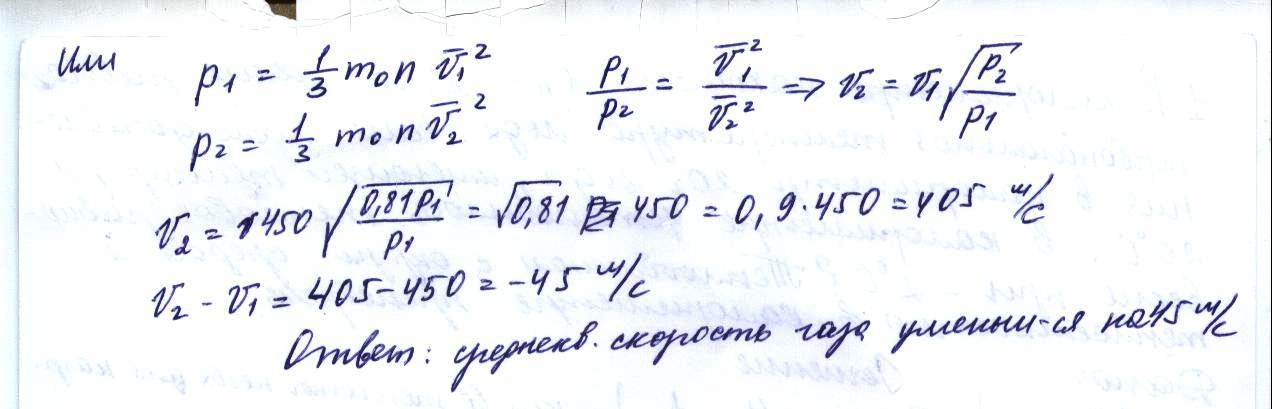 Или p1 = 1/3 m₀n v̄₁² p1/p2 = v̄₁²/v̄₂² => v₂ = v₁√(p₂/p₁)
p₂ = 1/3 m₀n v̄₂²
v₂ = 450 √(0,81p₁/p₁) = √0,81 450 = 0,9·450 = 405 м/с
v₂ - v₁ = 405-450 = -45 м/с
Ответ: среднекв. скорость газа уменьш-ся на 45 м/с